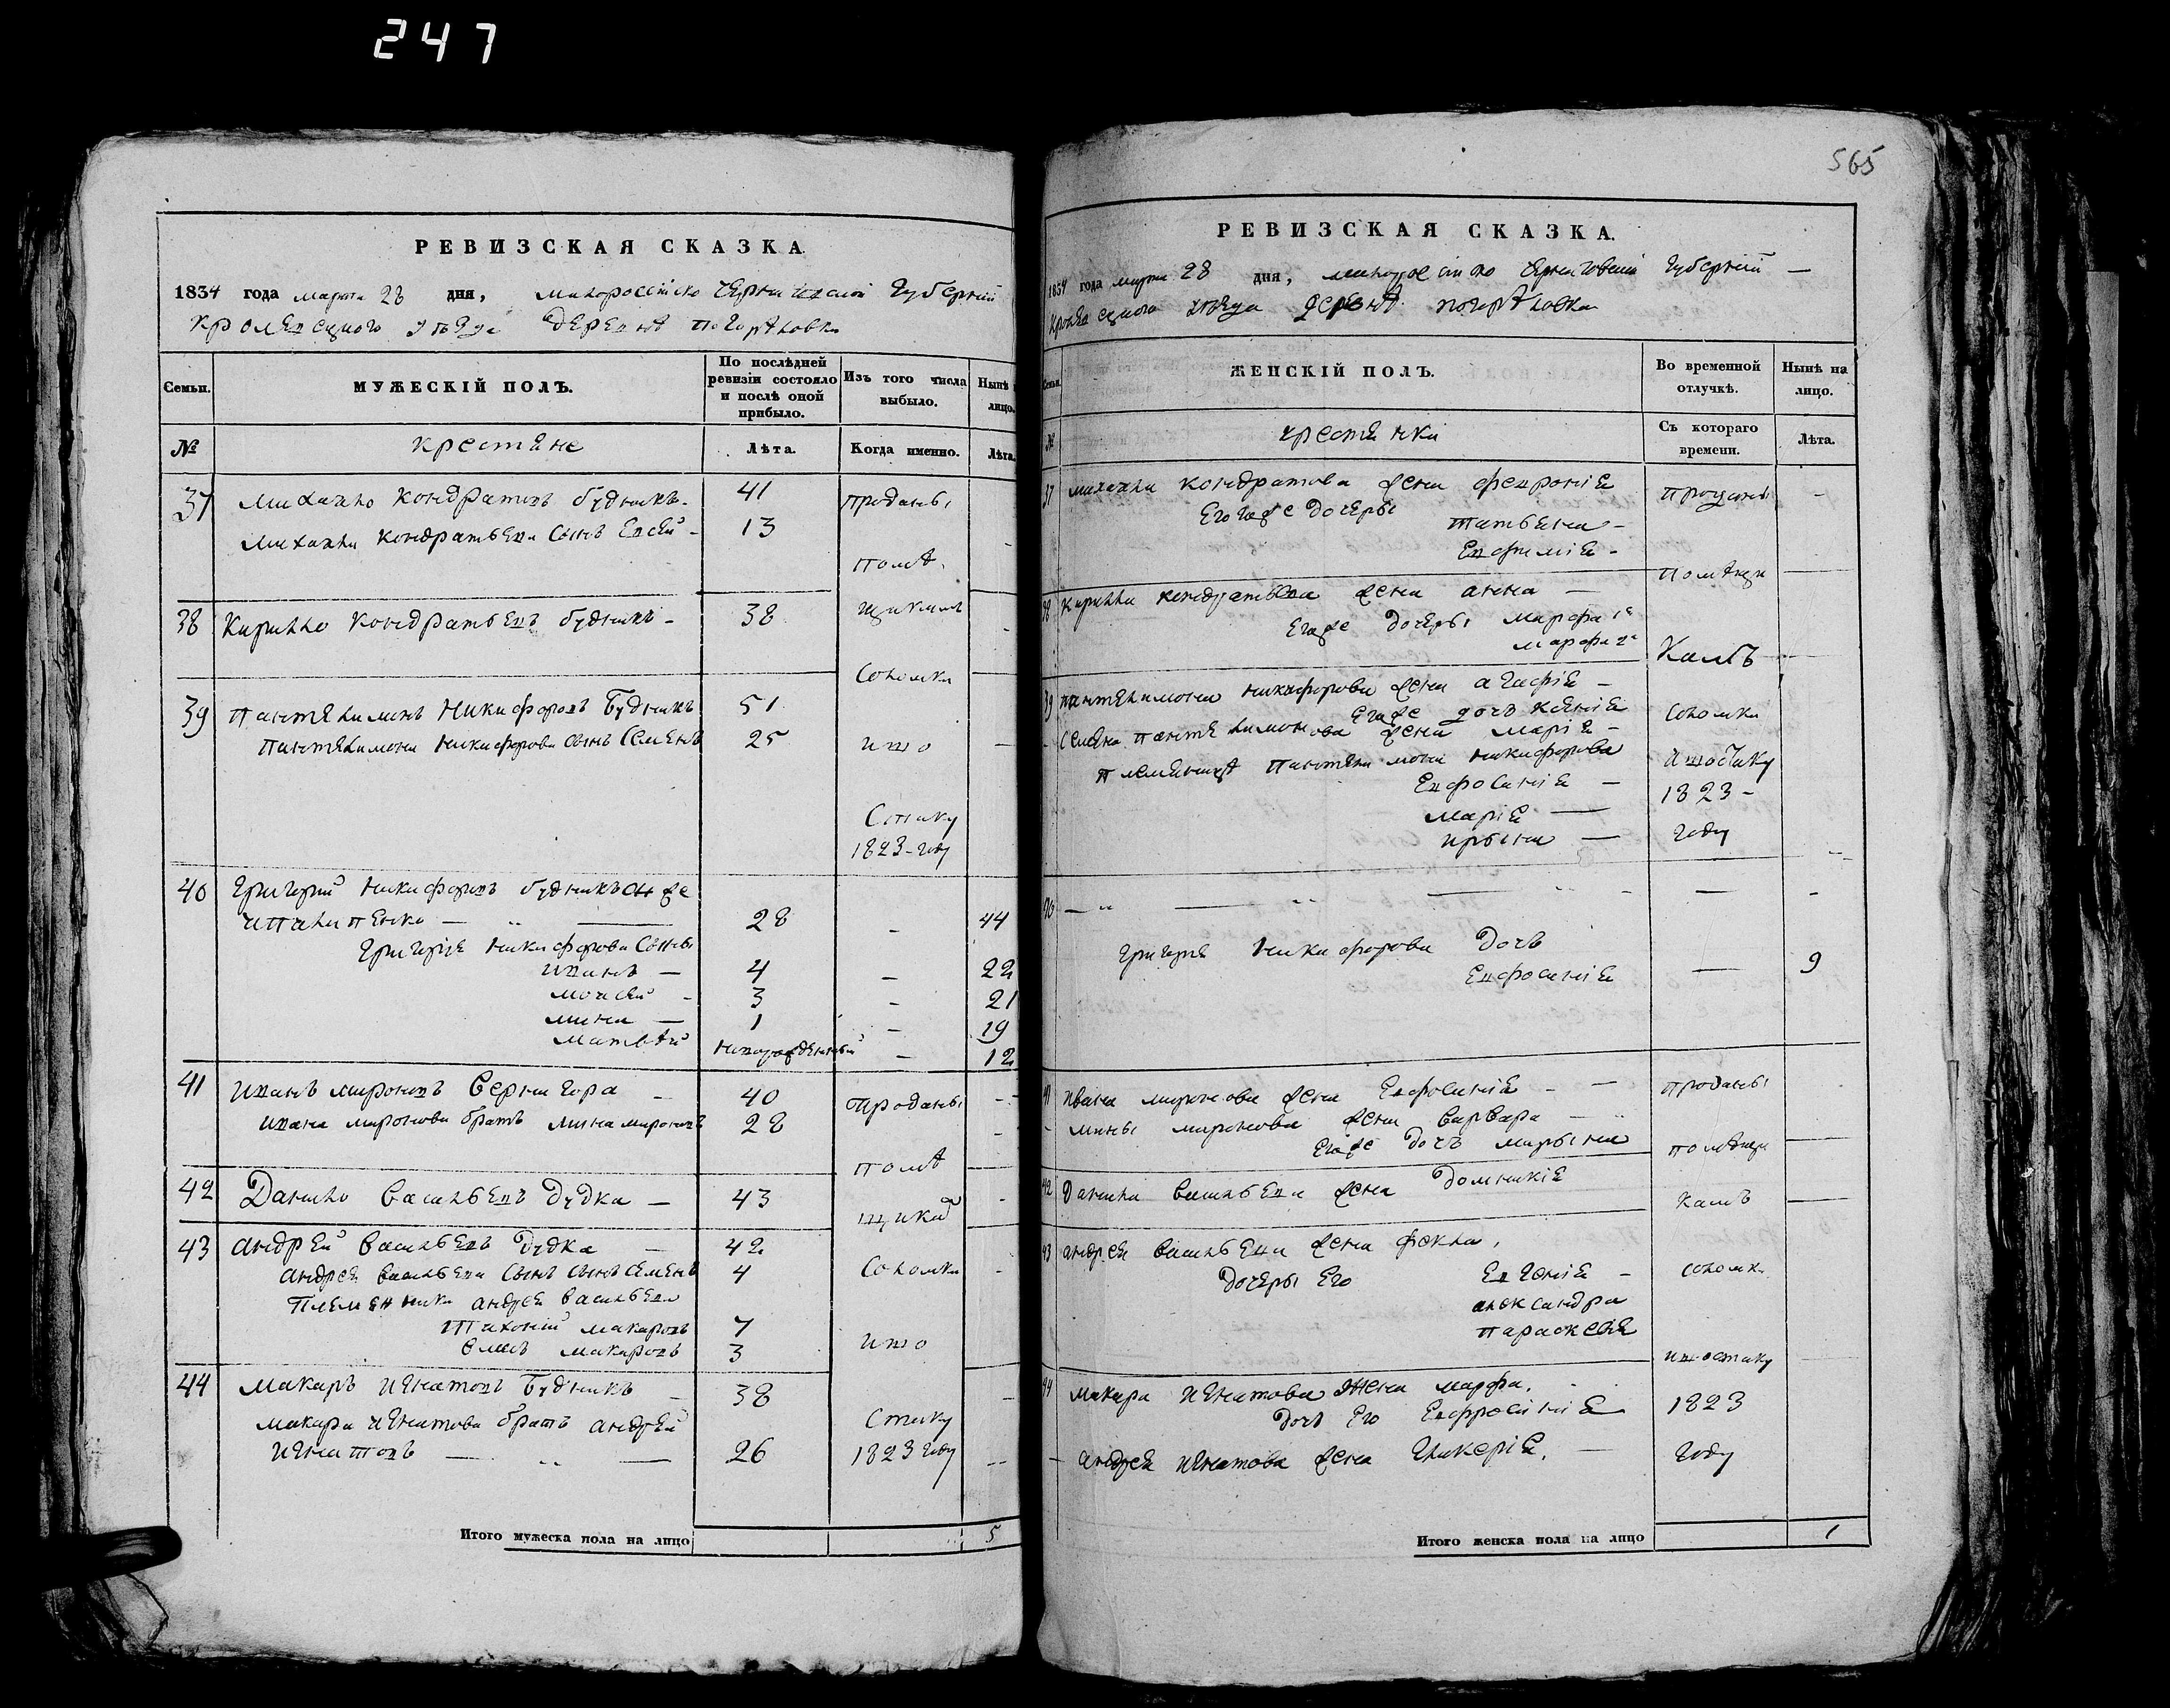 247
565
РЕВИЗСКАЯ СКАЗКА.
1834 года марта 28 дня, малороссійско Черниговской Губерніи
Кролевецкого уѣзда деревнѣ Погорѣловки
Семьи.
МУЖЕСКІЙ ПОЛЪ.
По послѣдней ревизіи состояло и послѣ оной прибыло.
Изъ того числа выбыло.
Нынѣ лицо.
№
крестяне
Лѣта.
Когда именно.
Лѣта.
37 Михайло Кондратовъ Будникъ - 41 проданы -
Михайли Кондратьева сынъ Евсей - 13 -
помѣ
38 Кирилло Кондратьевъ Будникъ - 38 щикамъ -
Соломки
39 Пантелимонъ Никифоровъ Будникъ 51
Пантелимона Никифорова сынъ Семенъ 25 што -
Стику
1823 году
40 Григорій Никифоровъ Будникъ онже
Потапенко — 28 - 44
Григорія Никифорова сыны
Иванъ — 4 - 22
Моисей - 3 - 21
Мина — 1 - 19
Матвѣй новорожденный - 12
41 Иванъ Мироновъ Верни гора - 40 проданы --
Ивана Миронова братъ Мина Мироновъ 28 -
помѣ
42 Данило Васильевъ Дудка — 43 -
щикам
43 Андрей Васильевъ Дудка — 42
Андрея Васильева сынъ сынъ Семенъ 4 Соломки -
Племенники Андрея Васильева
Тихоній Макаровъ 7
Макаровъ 3 што
44 Макаръ Игнатовъ Будникъ — 38 -
Макара Игнатова братъ Андрей Стику
Игнатовъ — 26 1823 году --
Итого мужеска пола на лицо 5
РЕВИЗСКАЯ СКАЗКА.
1834 года марта 28 дня, Черниговской Губерніи —
Кролевецкого уѣзда деревнѣ Погорѣловки
Семьи.
ЖЕНСКІЙ ПОЛЪ.
Во временной отлучкѣ.
Нынѣ на лицо.
№
крестянки
Съ котораго времени.
Лѣта.
37 Михайли Кондратова жена Февронія проданы -
Его же дочеры Татьяна -
Евфимія -
помѣщи
38 Кирилли Кондратьева жена Анна —
Егоже дочеры Марфа 1я
Марфа 2я Камъ
39 Пантелимона Никифорова жена Агафія —
Егоже дочь Ксенія Соломки
- Семена Пантелимонова жена Марія -
Племяницѣ Пантелимона Никифорова
Евфосинія — 1823 -
Марія —
Ирына — году
40
Григорія Никифорова дочь
Евфосинія — 9
41 Ивана Миронова жена Евфосинія - — проданы
- Мины Миронова жена Варвара —
Егоже дочь Марына помѣщи
42 Данила Васильева жена Домникія
камъ
43 Андрея Васильева жена Фекла,
дочеры Его Евгенія — Соломки
Александра
Параскевія
44 Макара Игнатова жена Марфа. -
дочь Его Евфросинія 1823
— Андрея Игнатова жена Гликерія. — году
Итого женска пола на лицо 1